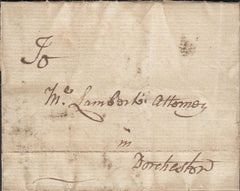 To
Mr. Lambert Attorney
in
Dorchester